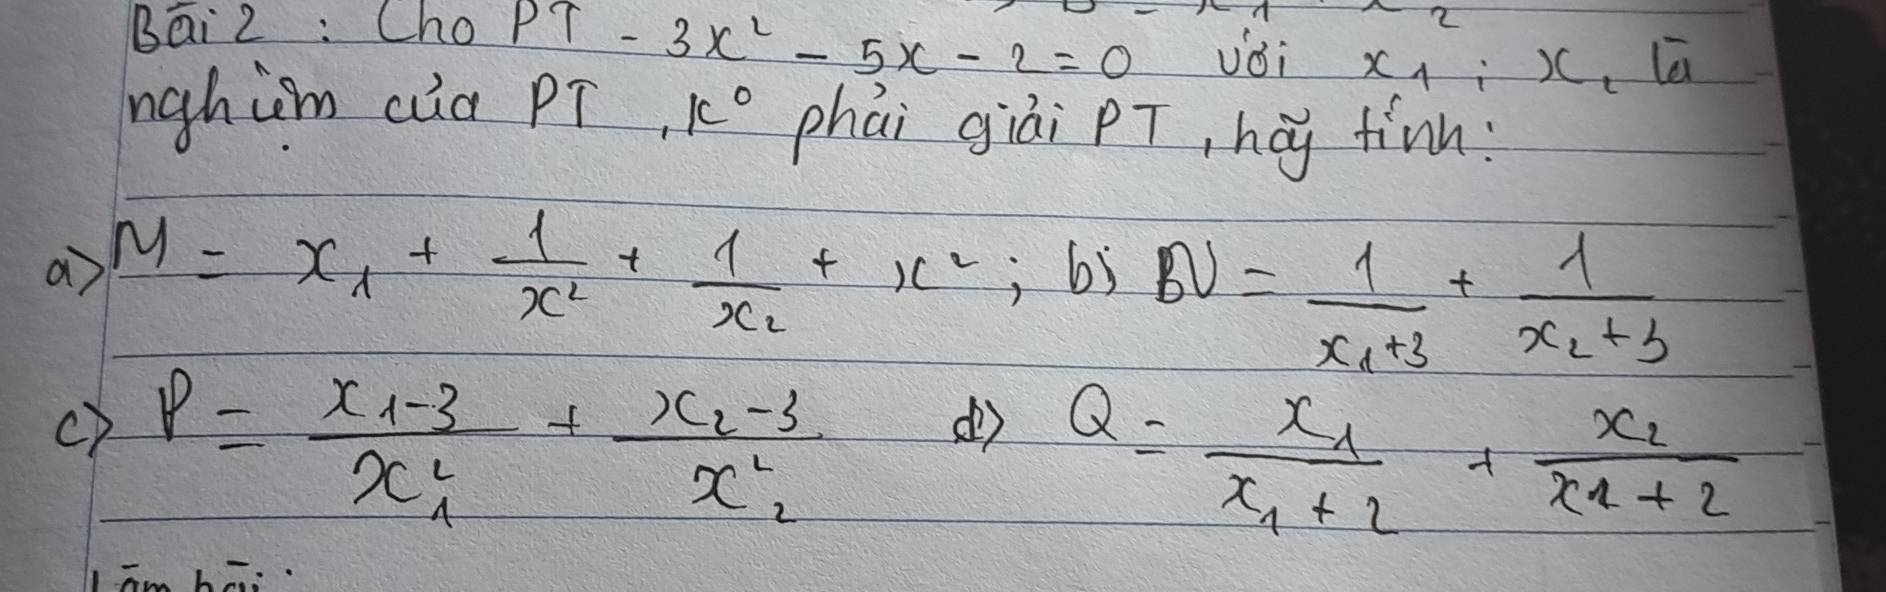 Bài 2 : Cho PT - 3x² - 5x - 2 = 0 với x₁ ; x₂ là
nghiệm của PT , k⁰ phải giải PT , hãy tính :
a) M = x₁ + 1/x² + 1/x₂ + x² ; b) BN = 1/(x₁+3) + 1/(x₂+3)
c) P = (x₁-3)/x₁² + (x₂-3)/x₂² d) Q = x₁/(x₁+2) + x₂/(x1+2)
Làm bài :